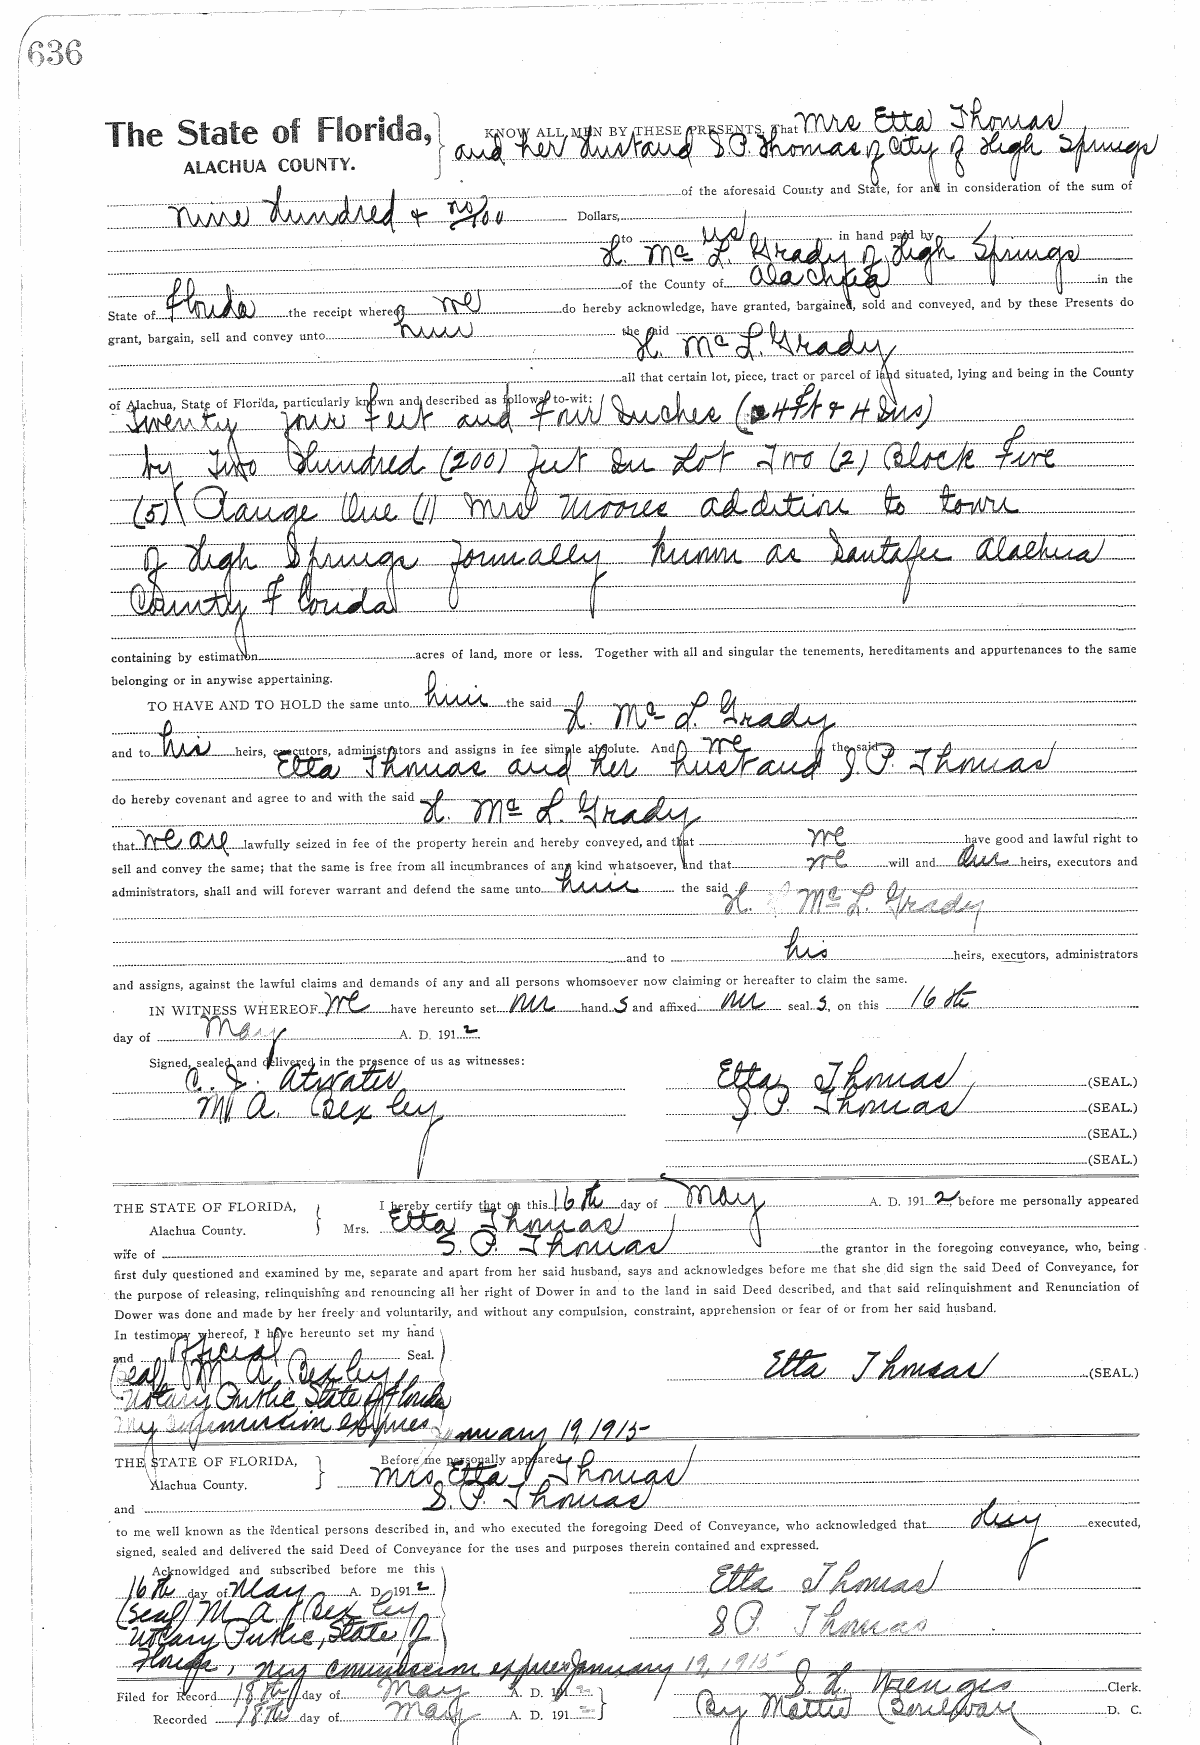 636
The State of Florida,
ALACHUA COUNTY.
KNOW ALL MEN BY THESE PRESENTS, That Mrs Etta Thomas
and her Husband S P. Thomas of City of High Springs
of the aforesaid County and State, for and in consideration of the sum of
Nine Hundred & no/100 Dollars,
to us in hand paid by
H. Mc L. Grady of High Springs
of the County of Alachua in the
State of Florida the receipt whereof we do hereby acknowledge, have granted, bargained, sold and conveyed, and by these Presents do
grant, bargain, sell and convey unto him the said
H. Mc L. Grady
all that certain lot, piece, tract or parcel of land situated, lying and being in the County
of Alachua, State of Florida, particularly known and described as follows, to-wit:
Twenty four Feet and Four Inches (24 ft & 4 Ins)
by Two Hundred (200) feet In Lot Two (2) Block Five
(5) Range One (1) Mrs Moores addition to town
of High Springs formally known as Santafee Alachua
County Florida
containing by estimation acres of land, more or less. Together with all and singular the tenements, hereditaments and appurtenances to the same
belonging or in anywise appertaining.
TO HAVE AND TO HOLD the same unto him the said H. Mc L. Grady
and to his heirs, executors, administrators and assigns in fee simple absolute. And we the said
Etta Thomas and her husband S. P. Thomas
do hereby covenant and agree to and with the said H. Mc L. Grady
that we are lawfully seized in fee of the property herein and hereby conveyed, and that we have good and lawful right to
sell and convey the same; that the same is free from all incumbrances of any kind whatsoever, and that we will and our heirs, executors and
administrators, shall and will forever warrant and defend the same unto him the said H. Mc L. Grady
and to his heirs, executors, administrators
and assigns, against the lawful claims and demands of any and all persons whomsoever now claiming or hereafter to claim the same.
IN WITNESS WHEREOF We have hereunto set our hand s and affixed our seal s, on this 16th
day of May A. D. 1912
Signed, sealed and delivered in the presence of us as witnesses:
Atwater Etta Thomas (SEAL.)
M. A. Bexley S P. Thomas (SEAL.)
(SEAL.)
(SEAL.)
THE STATE OF FLORIDA,
Alachua County.
I hereby certify that on this 16th day of May A. D. 1912, before me personally appeared
Mrs. Etta Thomas
wife of S. P. Thomas the grantor in the foregoing conveyance, who, being
first duly questioned and examined by me, separate and apart from her said husband, says and acknowledges before me that she did sign the said Deed of Conveyance, for
the purpose of releasing, relinquishing and renouncing all her right of Dower in and to the land in said Deed described, and that said relinquishment and Renunciation of
Dower was done and made by her freely and voluntarily, and without any compulsion, constraint, apprehension or fear of or from her said husband.
In testimony whereof, I have hereunto set my hand
and official Seal.
(Seal) M A. Bexley Etta Thomas (SEAL)
Notary Public, State of Florida
My Commission expires January 19, 1915
THE STATE OF FLORIDA,
Alachua County.
Before me personally appeared
Mrs Etta Thomas
and S. P. Thomas
to me well known as the identical persons described in, and who executed the foregoing Deed of Conveyance, who acknowledged that they executed,
signed, sealed and delivered the said Deed of Conveyance for the uses and purposes therein contained and expressed.
Acknowldged and subscribed before me this
16th day of May A. D. 1912 Etta Thomas
(Seal) M A. Bexley S P. Thomas
Notary Public, State of
Florida, my commission expires January 19, 1915
Filed for Record 18th day of May A. D. 191 S. H. Wienges Clerk.
Recorded 18th day of May A. D. 191 By Mattie D. C.